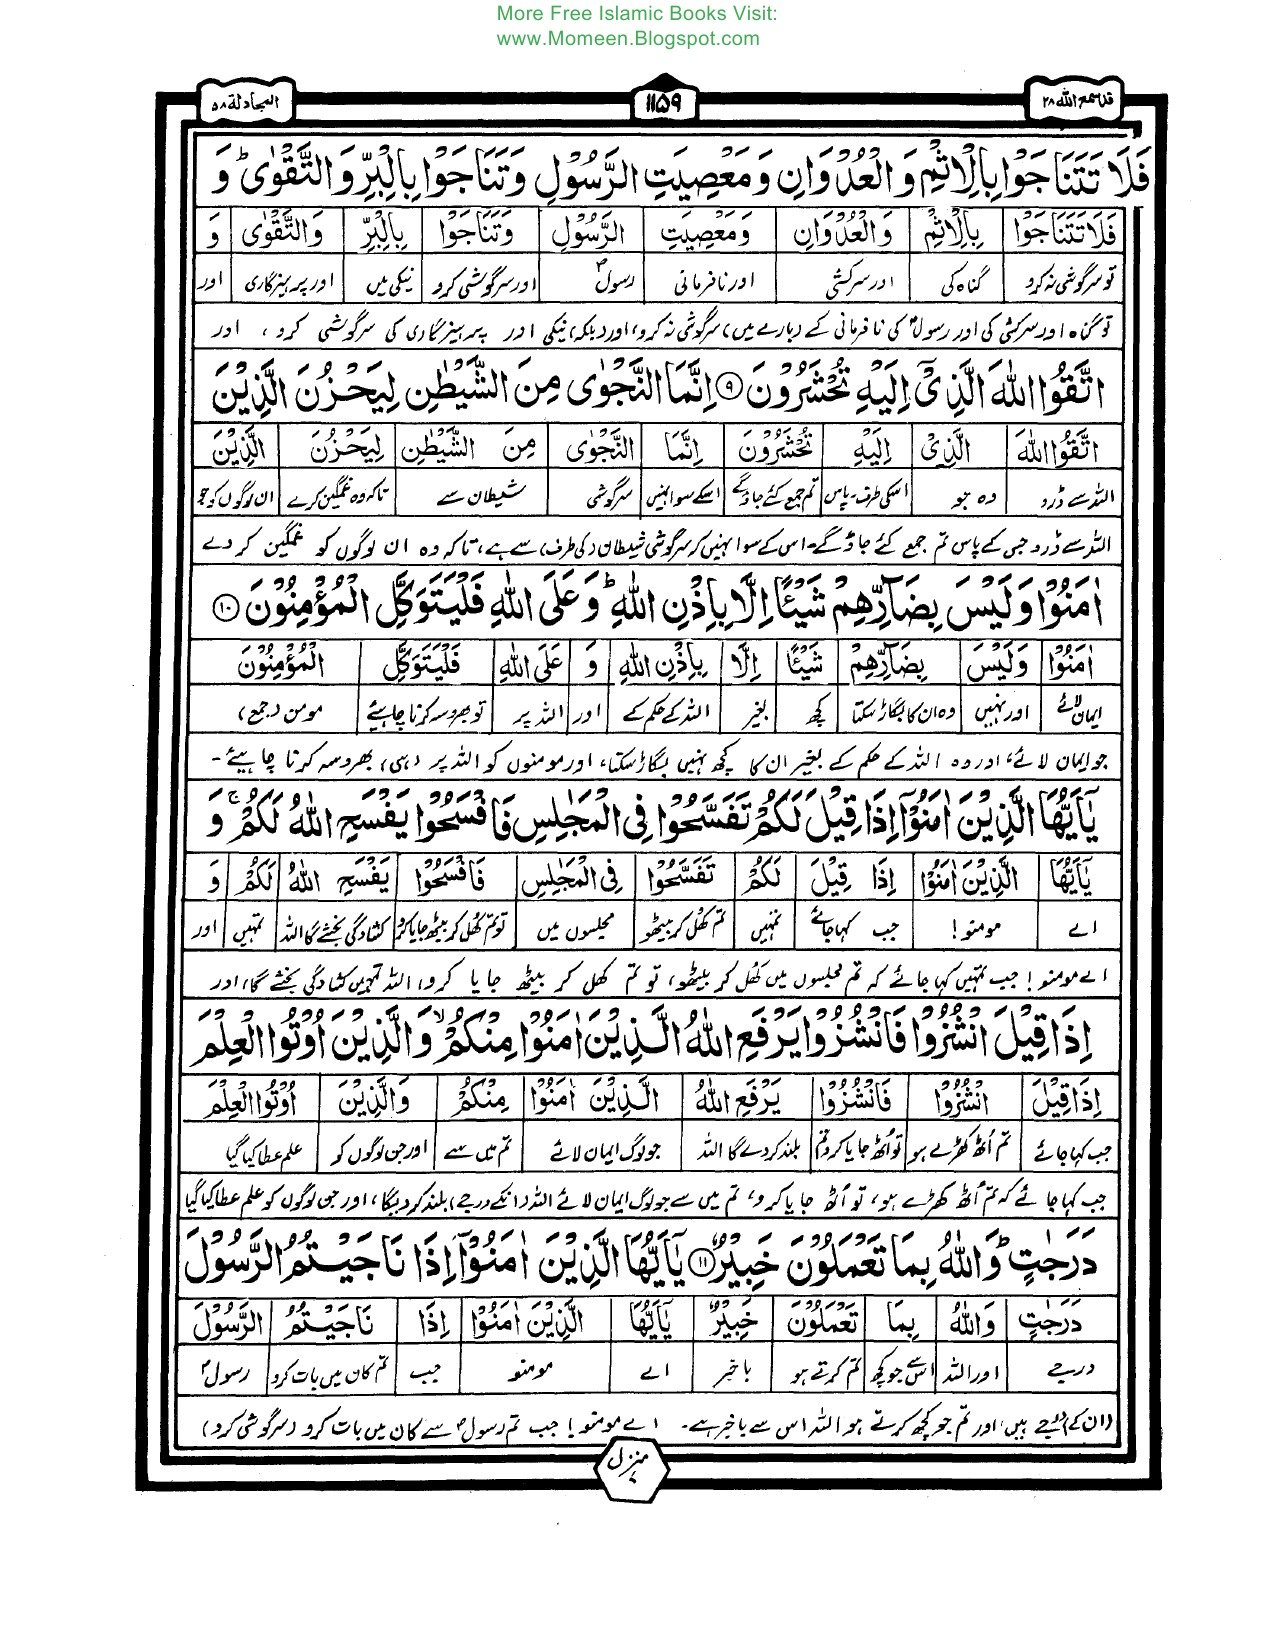 More Free Islamic Books Visit:
www.Momeen.Blogspot.com
قد سمع الله ٢٨
١١٥٩
المجادلة ٥٨
فَلَا تَتَنَاجَوْا بِالْاِثْمِ وَ الْعُدْوَانِ وَ مَعْصِيَتِ الرَّسُوْلِ وَتَنَاجَوْا بِالْبِرِّ وَ التَّقْوٰى ؕ وَ
فَلَا تَتَنَاجَوْا بِالْاِثْمِ وَالْعُدْوَانِ وَمَعْصِيَتِ الرَّسُوْلِ وَتَنَاجَوْا بِالْبِرِّ وَالتَّقْوٰى وَ
تو سرگوشی نہ کرو گناہ کی اور سرکشی اور نافرمانی رسولؐ اور سرگوشی کرو نیکی میں اور پرہیزگاری اور
تو گناہ اور سرکشی کی اور رسولؐ کی نافرمانی کے (بارے میں) سرگوشی نہ کرو، اور (بلکہ) نیکی اور پرہیزگاری کی سرگوشی کرو، اور
اتَّقُوا اللّٰهَ الَّذِيْٓ اِلَيْهِ تُحْشَرُوْنَ ۹ اِنَّمَا النَّجْوٰى مِنَ الشَّيْطٰنِ لِيَحْزُنَ الَّذِيْنَ
اتَّقُوا اللّٰهَ الَّذِيْٓ اِلَيْهِ تُحْشَرُوْنَ اِنَّمَا النَّجْوٰى مِنَ الشَّيْطٰنِ لِيَحْزُنَ الَّذِيْنَ
اللہ سے ڈرو وہ جو اسکی طرف۔پاس تم جمع کئے جاؤگے اسکے سوا نہیں سرگوشی شیطان سے تاکہ وہ غمگین کرے ان لوگوں کو جو
اللہ سے ڈرو جس کے پاس تم جمع کئے جاؤ گے۔ اس کے سوا نہیں کہ سرگوشی شیطان (کی طرف) سے ہے، تاکہ وہ ان لوگوں کو غمگین کر دے
اٰمَنُوْا وَلَيْسَ بِضَآرِّهِمْ شَيْئًا اِلَّا بِاِذْنِ اللّٰهِ ؕ وَعَلَى اللّٰهِ فَلْيَتَوَكَّلِ الْمُؤْمِنُوْنَ ۱۰
اٰمَنُوْا وَلَيْسَ بِضَآرِّهِمْ شَيْئًا اِلَّا بِاِذْنِ اللّٰهِ وَ عَلَى اللّٰهِ فَلْيَتَوَكَّلِ الْمُؤْمِنُوْنَ
ایمان لائے اور نہیں وہ ان کا بگاڑ سکتا کچھ بغیر اللہ کے حکم کے اور اللہ پر تو بھروسہ کرنا چاہیئے مومن (جمع)
جو ایمان لائے، اور وہ اللہ کے حکم کے بغیر ان کا کچھ نہیں بگاڑ سکتا، اور مومنوں کو اللہ پر (ہی) بھروسہ کرنا چاہیئے۔
يٰٓاَيُّهَا الَّذِيْنَ اٰمَنُوْٓا اِذَا قِيْلَ لَكُمْ تَفَسَّحُوْا فِي الْمَجٰلِسِ فَافْسَحُوْا يَفْسَحِ اللّٰهُ لَكُمْ ۚ وَ
يٰٓاَيُّهَا الَّذِيْنَ اٰمَنُوْٓا اِذَا قِيْلَ لَكُمْ تَفَسَّحُوْا فِي الْمَجٰلِسِ فَافْسَحُوْا يَفْسَحِ اللّٰهُ لَكُمْ وَ
اے مومنو! جب کہا جائے تمہیں تم کھل کر بیٹھو مجلسوں میں تو تم کھل کر بیٹھ جایا کرو کشادگی بخشے گا اللہ تمہیں اور
اے مومنو! جب تمہیں کہا جائے کہ تم مجلسوں میں کھل کر بیٹھو، تو تم کھل کر بیٹھ جایا کرو، اللہ تمہیں کشادگی بخشے گا، اور
اِذَا قِيْلَ انْشُزُوْا فَانْشُزُوْا يَرْفَعِ اللّٰهُ الَّذِيْنَ اٰمَنُوْا مِنْكُمْ ۙ وَالَّذِيْنَ اُوْتُوا الْعِلْمَ
اِذَا قِيْلَ انْشُزُوْا فَانْشُزُوْا يَرْفَعِ اللّٰهُ الَّذِيْنَ اٰمَنُوْا مِنْكُمْ وَالَّذِيْنَ اُوْتُوا الْعِلْمَ
جب کہا جائے تم اُٹھ کھڑے ہو تو اُٹھ جایا کرو تم بلند کر دے گا اللہ جو لوگ ایمان لائے تم میں سے اور جن لوگوں کو علم عطا کیا گیا
جب کہا جائے کہ تم اُٹھ کھڑے ہو، تو اُٹھ جایا کرو، تم میں سے جو لوگ ایمان لائے اللہ (انکے درجے) بلند کر دیگا، اور جن لوگوں کو علم عطا کیا گیا
دَرَجٰتٍ ؕ وَاللّٰهُ بِمَا تَعْمَلُوْنَ خَبِيْرٌ ۱۱ يٰٓاَيُّهَا الَّذِيْنَ اٰمَنُوْٓا اِذَا نَاجَيْتُمُ الرَّسُوْلَ
دَرَجٰتٍ وَاللّٰهُ بِمَا تَعْمَلُوْنَ خَبِيْرٌ يٰٓاَيُّهَا الَّذِيْنَ اٰمَنُوْٓا اِذَا نَاجَيْتُمُ الرَّسُوْلَ
درجے اور اللہ اُسے جو کچھ تم کرتے ہو باخبر اے مومنو جب تم کان میں بات کرو رسولؐ
(ان کے) درجے ہیں اور تم جو کچھ کرتے ہو اللہ اس سے باخبر ہے۔ اے مومنو! جب تم رسولؐ سے کان میں بات کرو (سرگوشی کرو)
منزل ٧